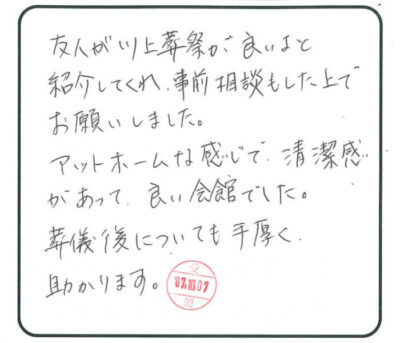 友人が川上葬祭が良いよと
紹介してくれ、事前相談もした上で
お願いしました。
アットホームな感じで、清潔感
があって、良い会館でした。
葬儀後についても手厚く、
助かります。
受
07.10.07
領